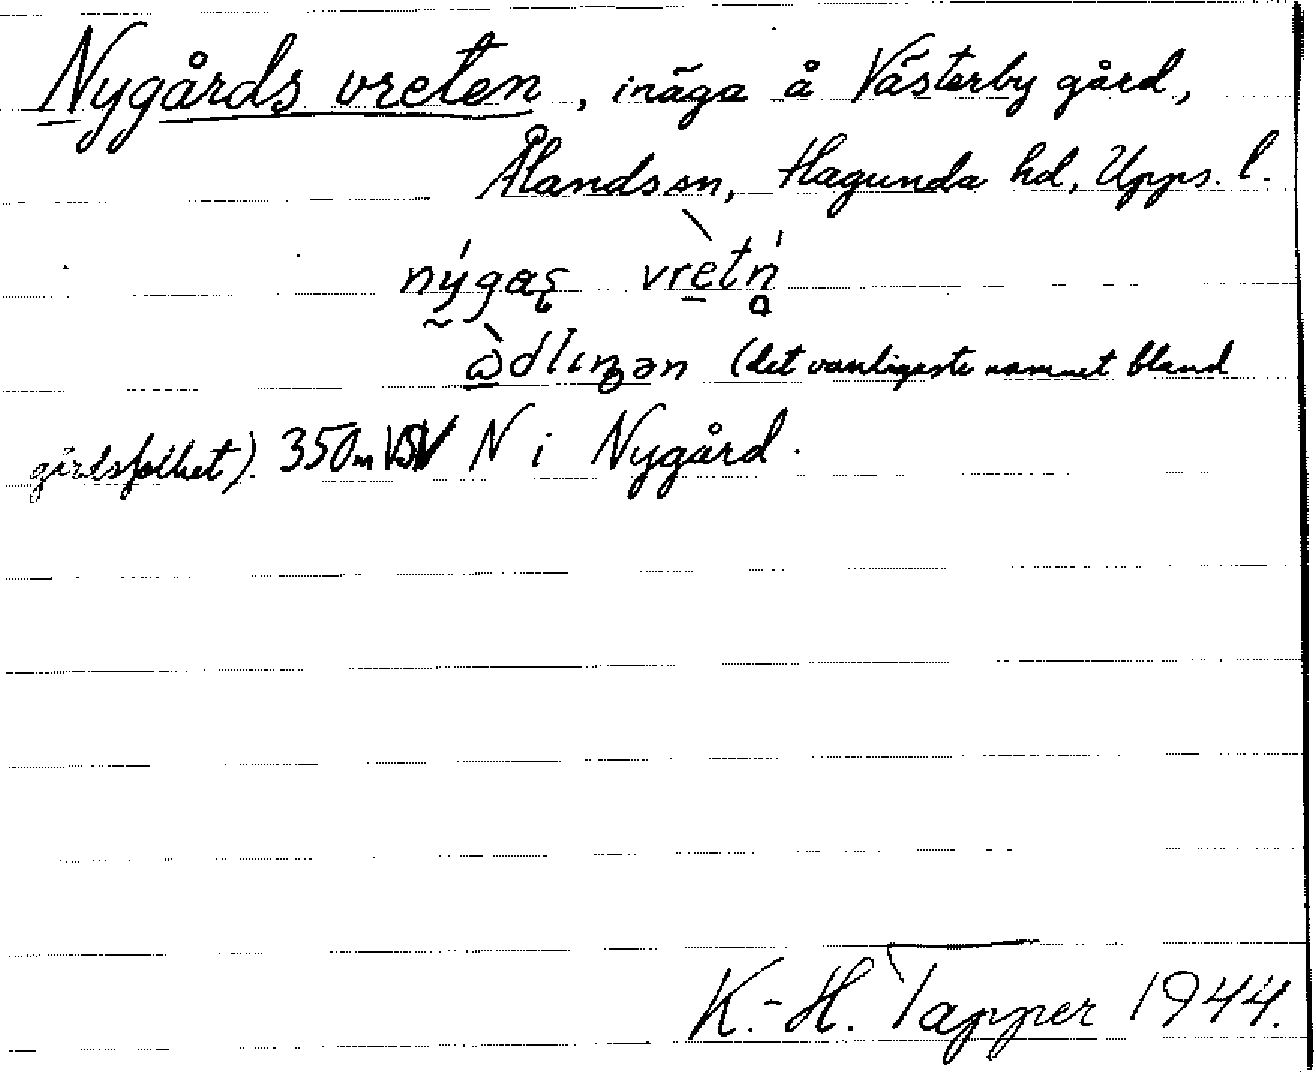 Nygårds vreten, inäga å Västerby gård,
Ålands sn, Hagunda hd, Upps. l.
nýgaʂ vrètṇ
òdlıŋən (det vanligaste namnet bland
gårdsfolket). 350 m VSV N i Nygård.
K.-H. Tapper 1944.